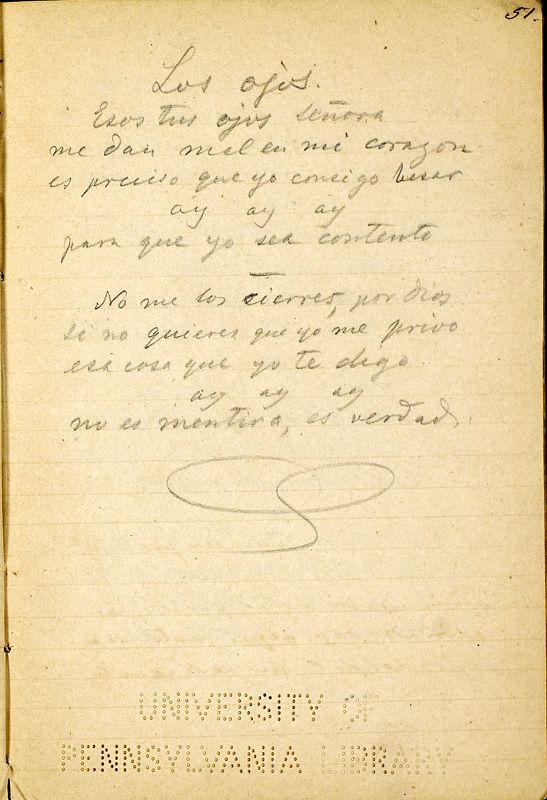 51.
Los ojos.
Esos tus ojos señora
me dan mal en mi corazon
es preciso que yo consigo besar
ay ay ay
para que yo sea contento
No me los cierres, por dios
si no quieres que yo me privo
esa cosa que yo te digo
ay ay ay
no es mentira, es verdad.
UNIVERSITY OF
PENNSYLVANIA LIBRARY